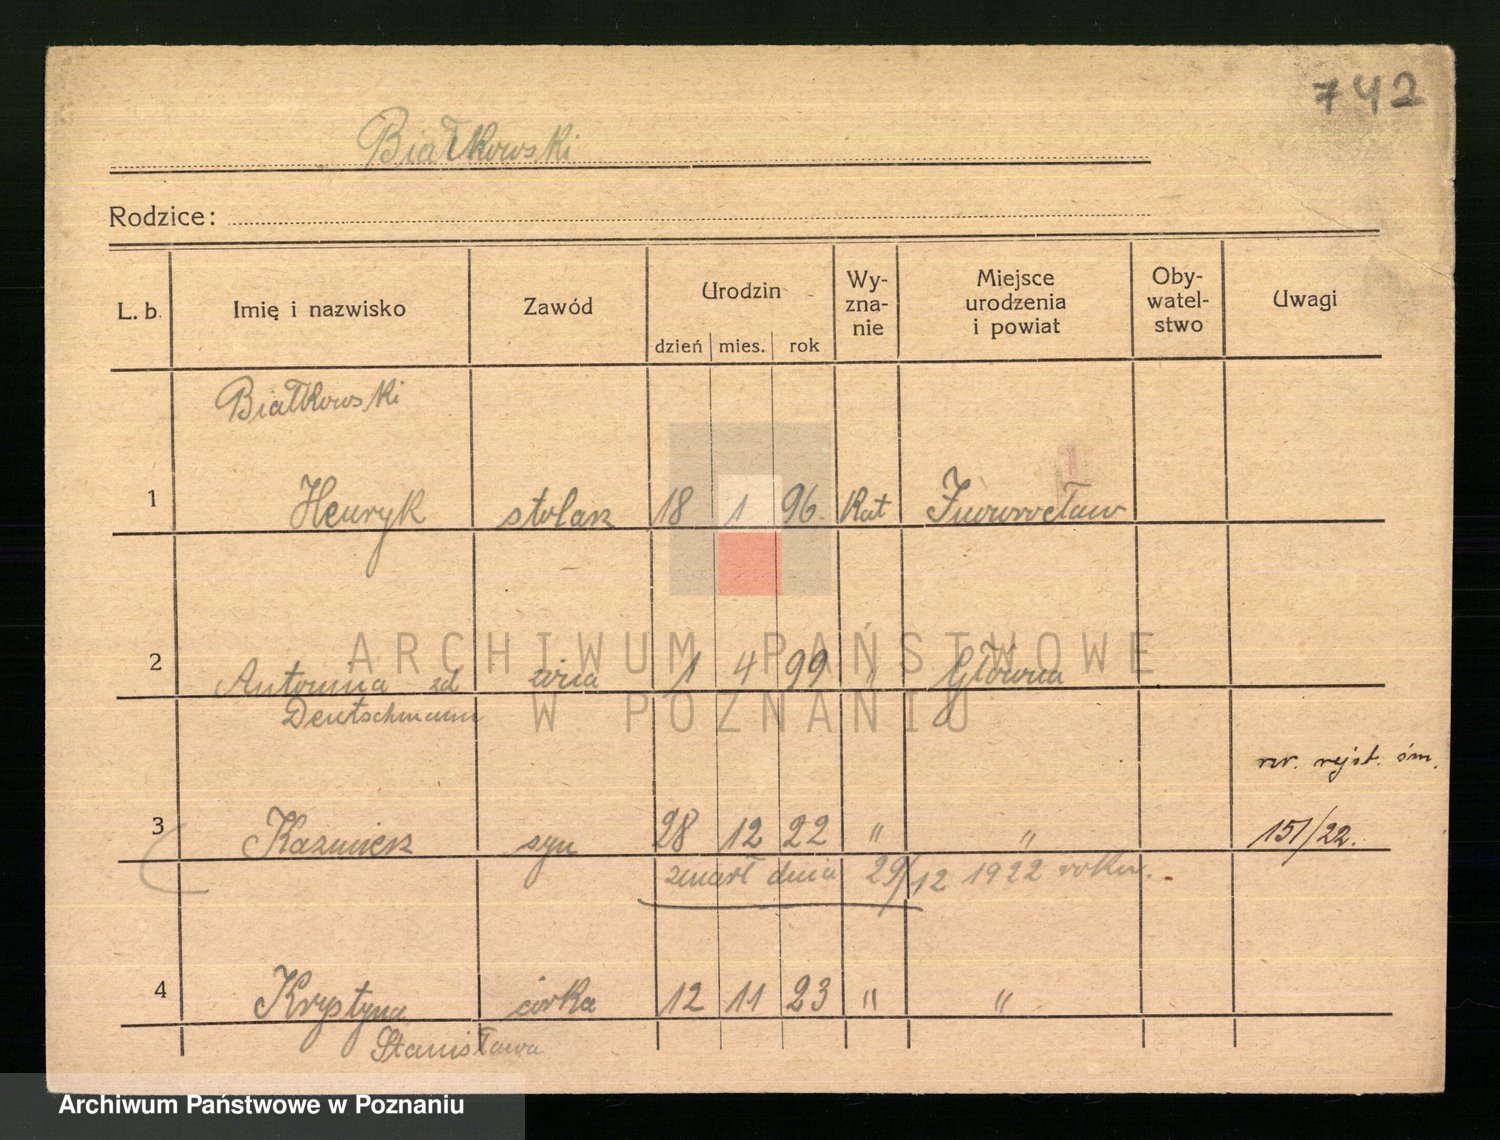 742
Białkowski
Rodzice:
L. b. Imię i nazwisko Zawód Urodzin dzień mies. rok Wy-zna-nie Miejsce urodzenia i powiat Oby-watel-stwo Uwagi
Białkowski
1
1 Henryk stolarz 18 1 96. Kat Inowrocław
ARCHIWUM PAŃSTWOWE
2 Antonina zd żona 1 4 99 " Główna
Deutschmann
W POZNANIU
rejst. śm.
3 Kazimierz syn 28 12 22 " " 151/22.
zmarł dnia 29/12 1922 roku.
4 Krystyna córka 12 11 23 " "
Stanisława
Archiwum Państwowe w Poznaniu